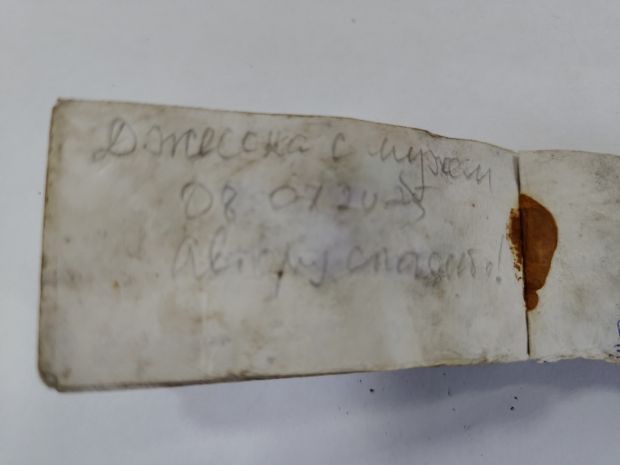 Джессика с мужем
08 07 2025
Автору спасиб.!